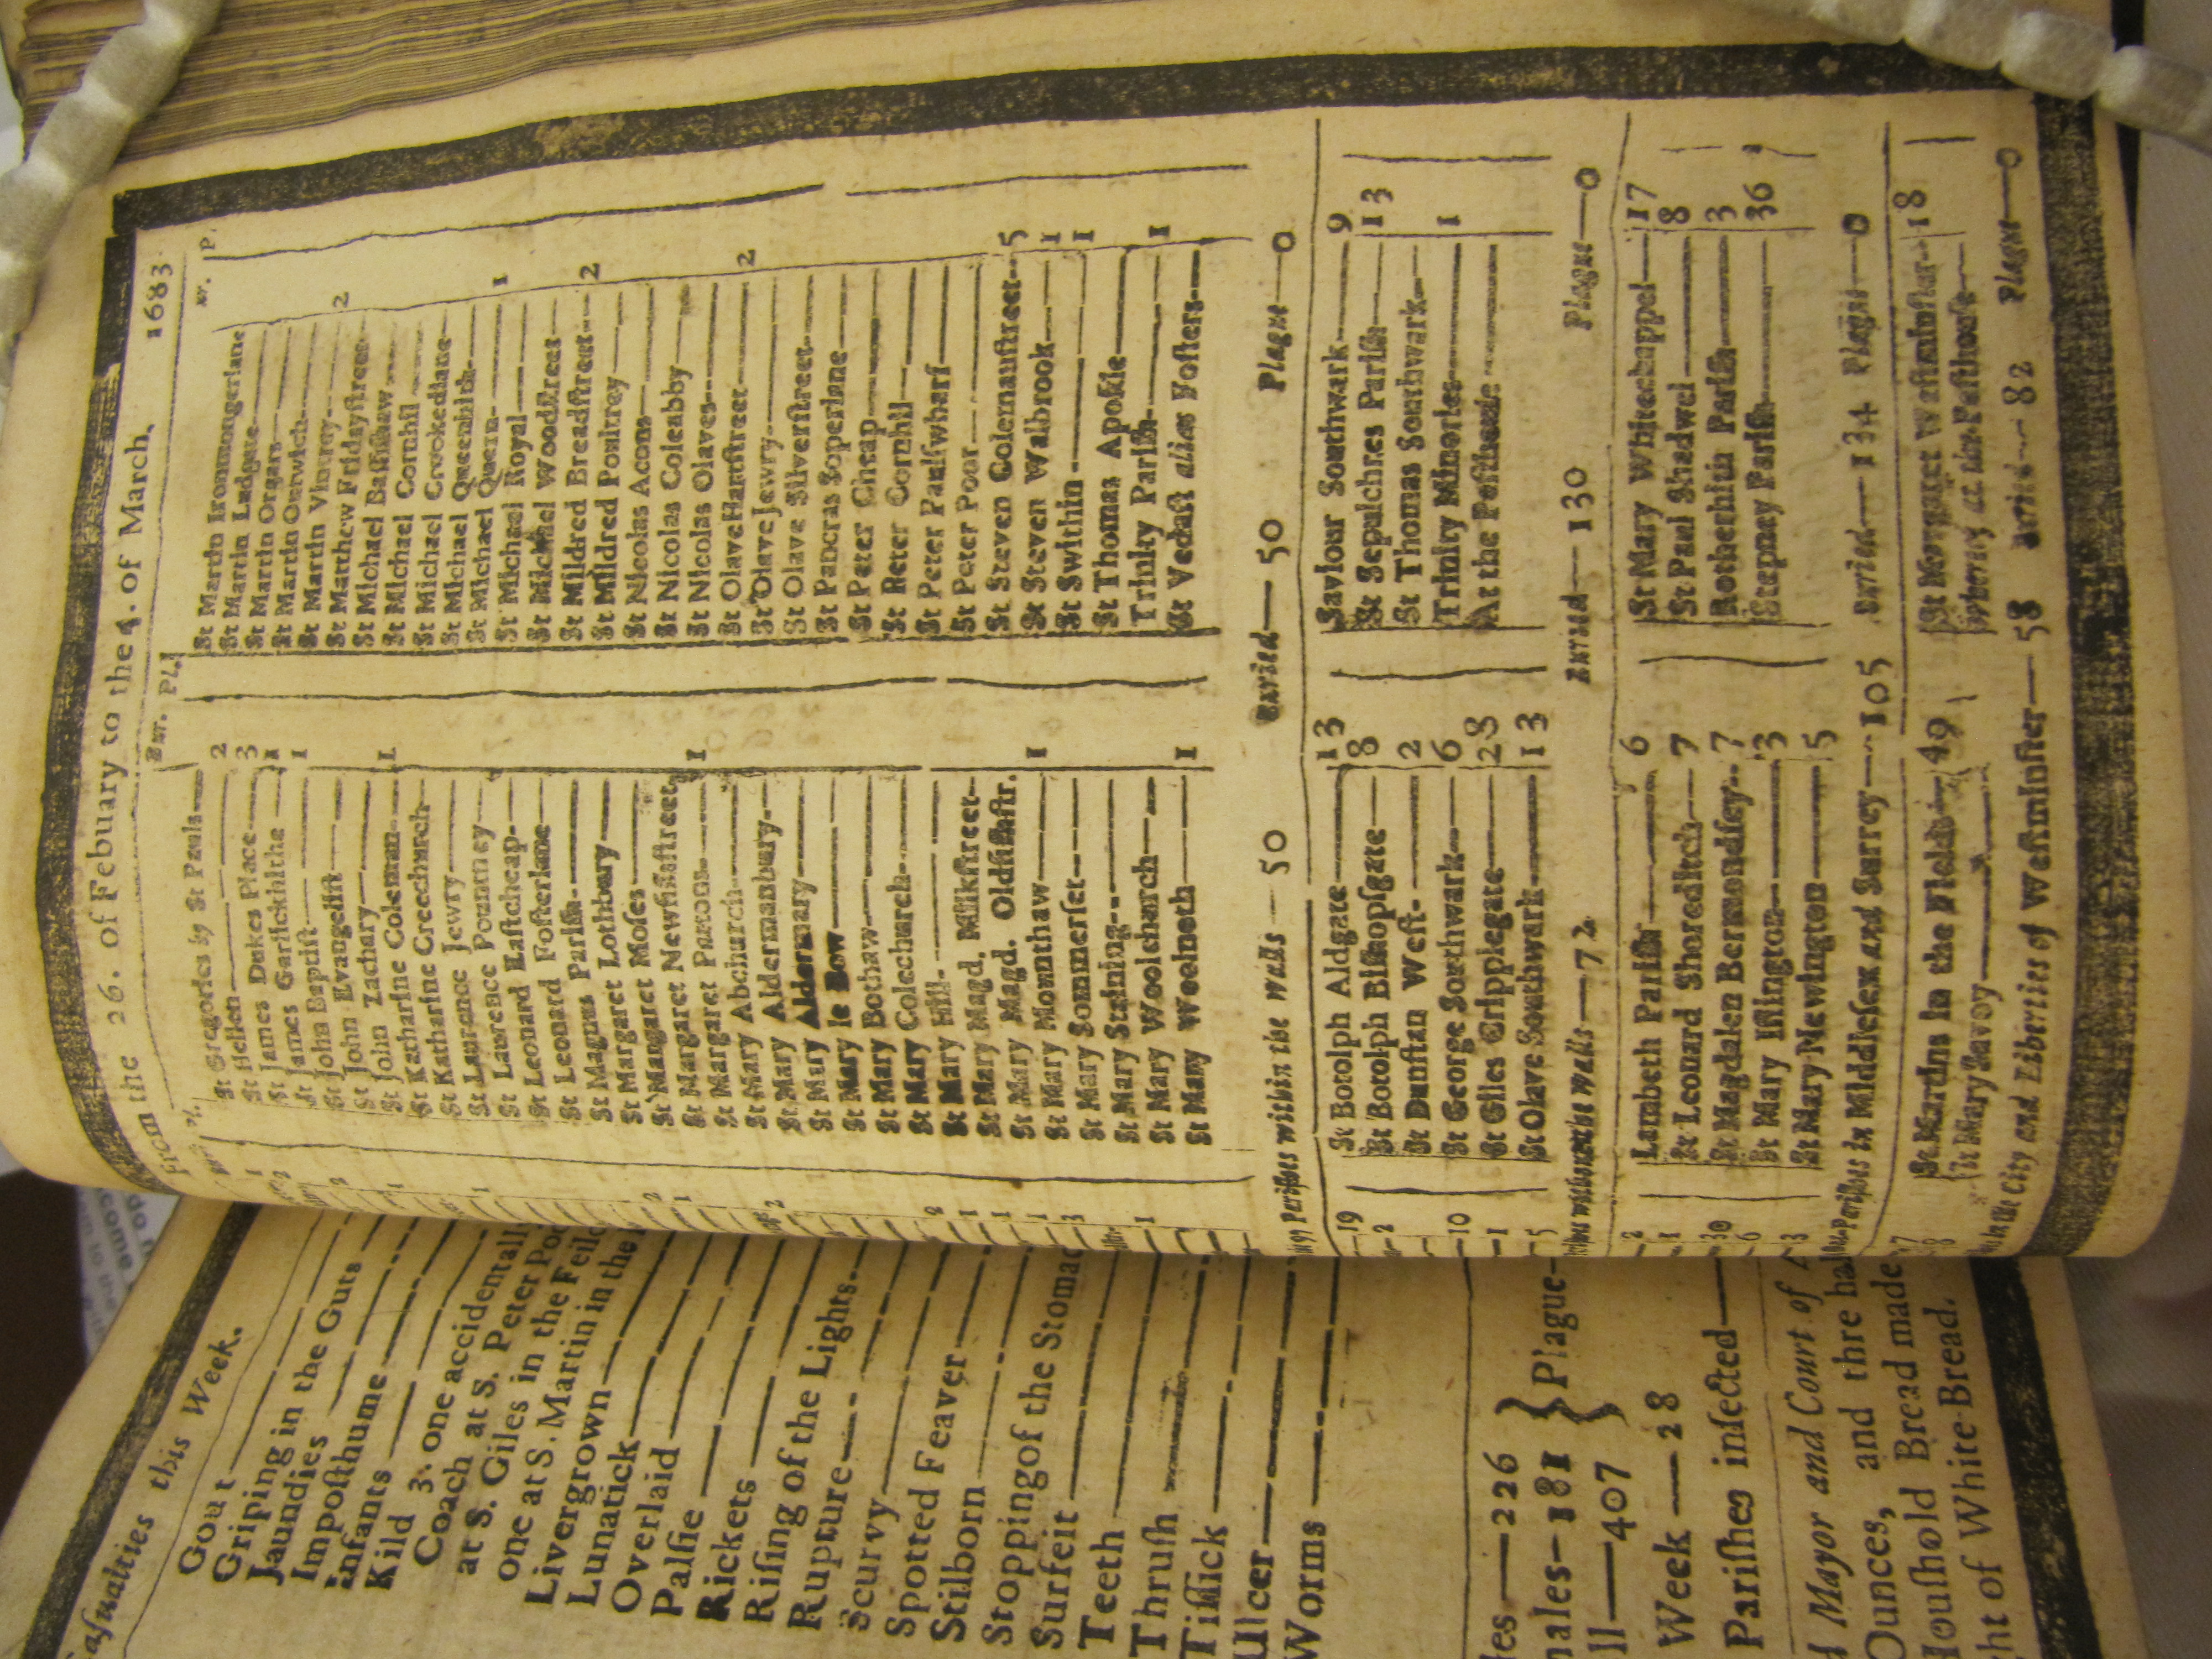 From the 26. of Febuary to the 4. of March. 1683
Bur. Pl.
St Gregories by St Pauls
St Hellen 2
St James Dukes Place 3
St James Garlickhithe 1
St John Baptist 1
St John Evangelist
St John Zachary
St Katharine Coleman 1
St Katharine Creechurch
St Laurence Jewry
St Lawrence Pountney
St Leonard Eastcheap
St Leonard Fosterlane
St Magnus Parish
St Margaret Lothbury
St Margaret Moses
St Margaret Newfishstreet
St Margaret Pattons 1
St Mary Abchurch
St Mary Aldermanbury
St Mary Aldermary
St Mary le Bow
St Mary Bothaw
St Mary Colechurch
St Mary Hill
St Mary Magd. Milkstreet
St Mary Magd. Oldfishstr.
St Mary Mounthaw 1
St Mary Sommerset
St Mary Staining
St Mary Woolchurch
St Mary Woolnoth 1
St Martin Ironmongerlane
St Martin Ludgate
St Martin Orgars
St Martin Outwich
St Martin Vintrey 2
St Matthew Fridaystreet
St Michael Bassishaw
St Michael Cornhil
St Michael Crookedlane
St Michael Queenhith
St Michael Quern 1
St Michael Royal
St Michael Woodstreet
St Mildred Breadstreet 2
St Mildred Poultrey
St Nicolas Acons
St Nicolas Coleabby
St Nicolas Olaves
St Olave Hartstreet 2
St Olave Jewry
St Olave Silverstreet
St Pancras Soperlane
St Peter Cheap
St Peter Cornhil
St Peter Paulswharf
St Peter Poor
St Steven Colemanstreet 5
St Steven Walbrook 1
St Swithin 1
St Thomas Apostle
Trinity Parish 1
St Vedast alias Fosters
97 Parishes within the walls — 50 Buried — 50 Plague — 0
St Botolph Aldgate 13
St Botolph Bishopsgate 8
St Dunstan West 2
St George Southwark 6
St Giles Cripplegate 28
St Olave Southwark 13
Saviour Southwark 9
St Sepulchres Parish 13
St Thomas Southwark
Trinity Minories 1
At the Pesthouse
without the walls — 72 Buried — 130 Plague — 0
Lambeth Parish 6
St Leonard Shoreditch 7
St Magdalen Bermondsey 7
St Mary Islington 3
St Mary Newington 5
St Mary Whitechappel 17
St Paul Shadwel 8
Rotherhith Parish 3
Stepney Parish 36
Parishes in Middlesex and Surrey — 105 Buried — 134 Plague — 0
St Martins in the Fields 49
St Mary Savoy
St Margaret Westminster 18
whereof at the Pesthouse
in the City and Liberties of Westminster — 58 Buried — 82 Plague — 0
this Week.
Gout
Griping in the Guts
Jaundies
Imposthume
Infants
Kild 3. one accidentall
Coach at S. Peter Poo
at S. Giles in the Feild
one at S. Martin in the
Livergrown
Lunatick
Overlaid
Palsie
Rickets
Rising of the Lights
Rupture
Scurvy
Spotted Feaver
Stilborn
Stopping of the Stomac
Surfeit
Teeth
Thrush
Tissick
Ulcer
Worms
les — 226
males — 181 } Plague
ll — 407
Week — 28
Parishes infected
Mayor and Court of
Ounces, and three ha
Houshold Bread made
ht of White Bread.